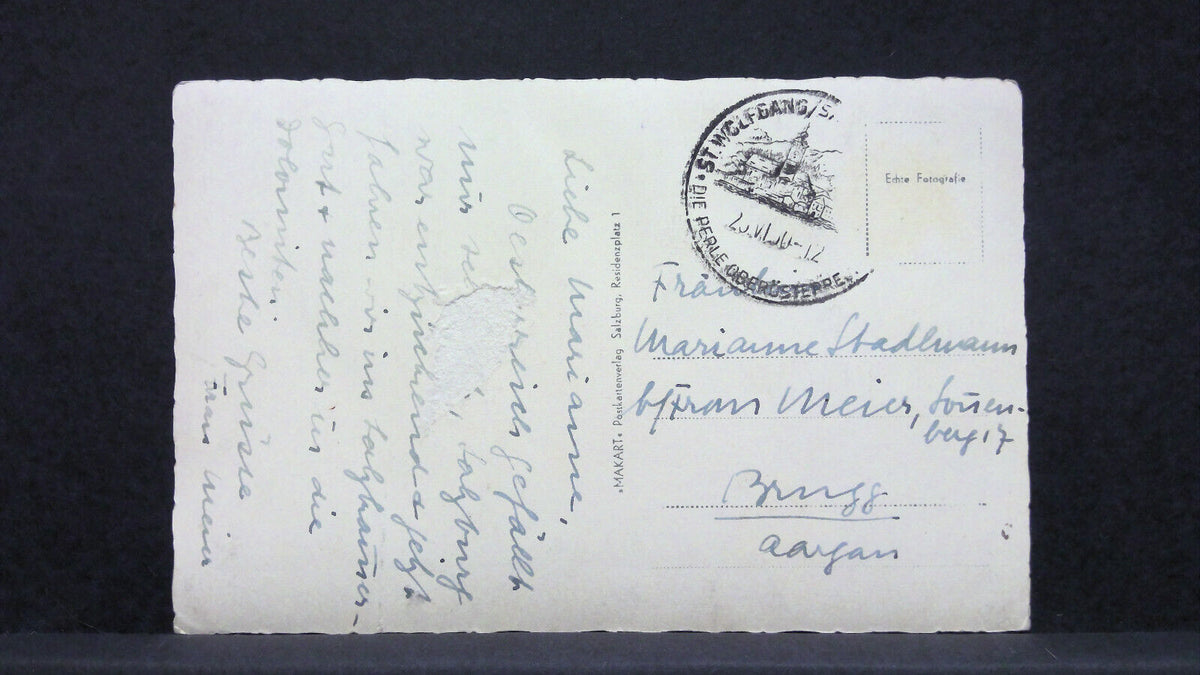 Liebe Marianne,
Oesterreich gefällt
mir
Salzburg
war entzückend & jetzt
fahren wir ins Salzkammer-
gut & nachher in die
Dolomiten.
Beste Grüsse
Frau Meier
»MAKART« Postkartenverlag Salzburg, Residenzplatz 1
ST. WOLFGANG/S.
DIE PERLE OBERÖSTERRE
Echte Fotografie
Fräulein
Marianne Stadlmann
b/Frau Meier, Sonnen-
berg 17
Brugg
Aargau